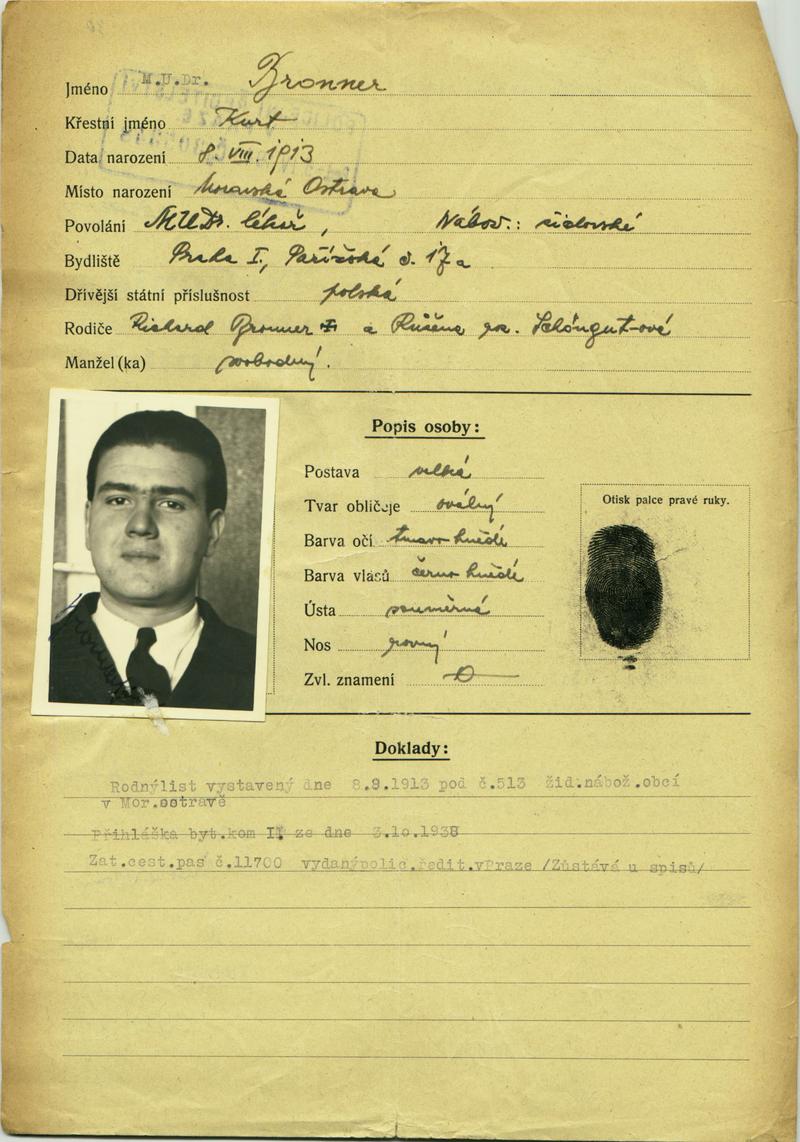 M.U.Dr.
Jméno Bronner
Křestní jméno Kurt
Data narození 8. VIII. 1913
Místo narození Moravská Ostrava
Povolání MUDr. lékař, Nábož.: židovské
Bydliště Praha I, Pařížská č. 17a
Dřívější státní příslušnost polská
Rodiče Richard Bronner a Růžena roz. Schöngut-ová
Manžel (ka) svobodný.
Popis osoby:
Postava velká
Tvar obličeje oválný
Barva očí tmavo hnědé
Barva vlasů černo hnědé
Ústa souměrná
Nos rovný
Zvl. znamení 0
Otisk palce pravé ruky.
Doklady:
Rodnýlist vystavený dne 8.9.1913 pod č.513 žid.nábož.obcí
v Mor.ostravě
Přihláška byt.kom II ze dne 3.10.1938
Zat.cest.pas č.11700 vydanýpolic.ředit.vPraze /Zůstává u spisů/